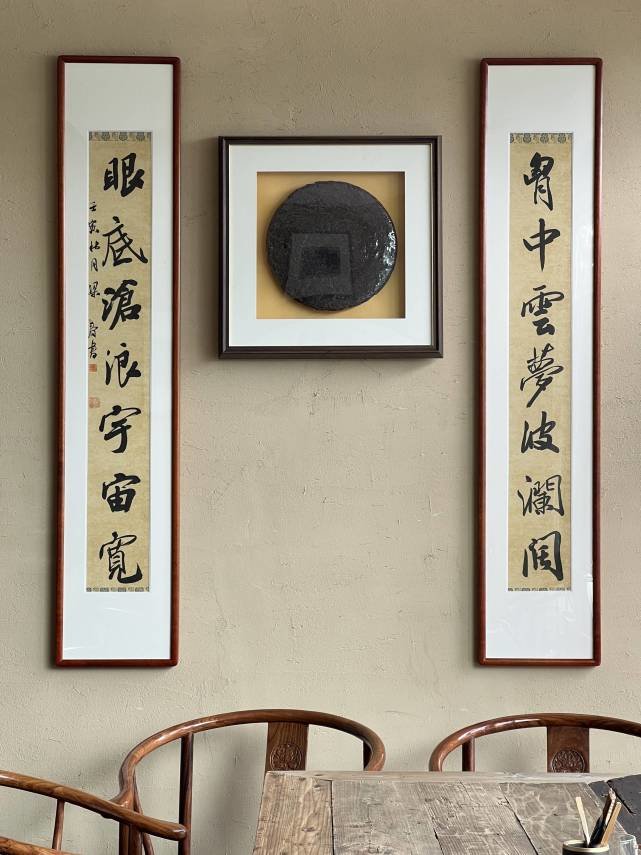 胷中雲夢波瀾闊
眼底滄浪宇宙寬
壬寅